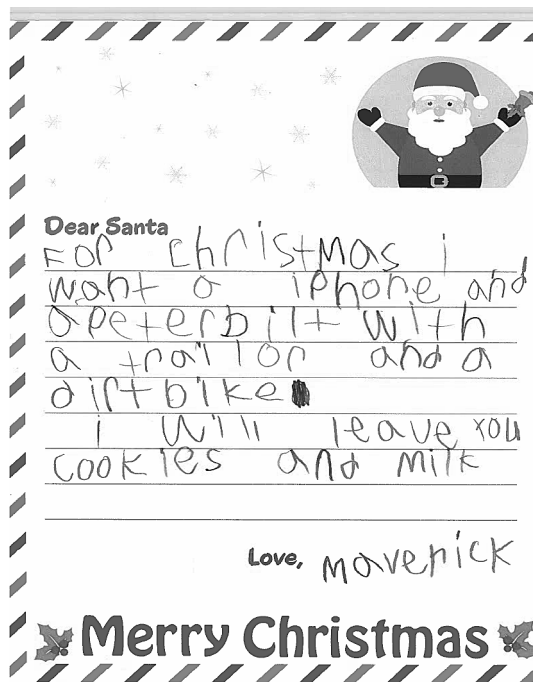 Dear Santa
For christmas i
want a iphone and
a peterbilt with
a trailor and a
dirtbike
i will leave you
cookies and milk
Love, maverick
Merry Christmas